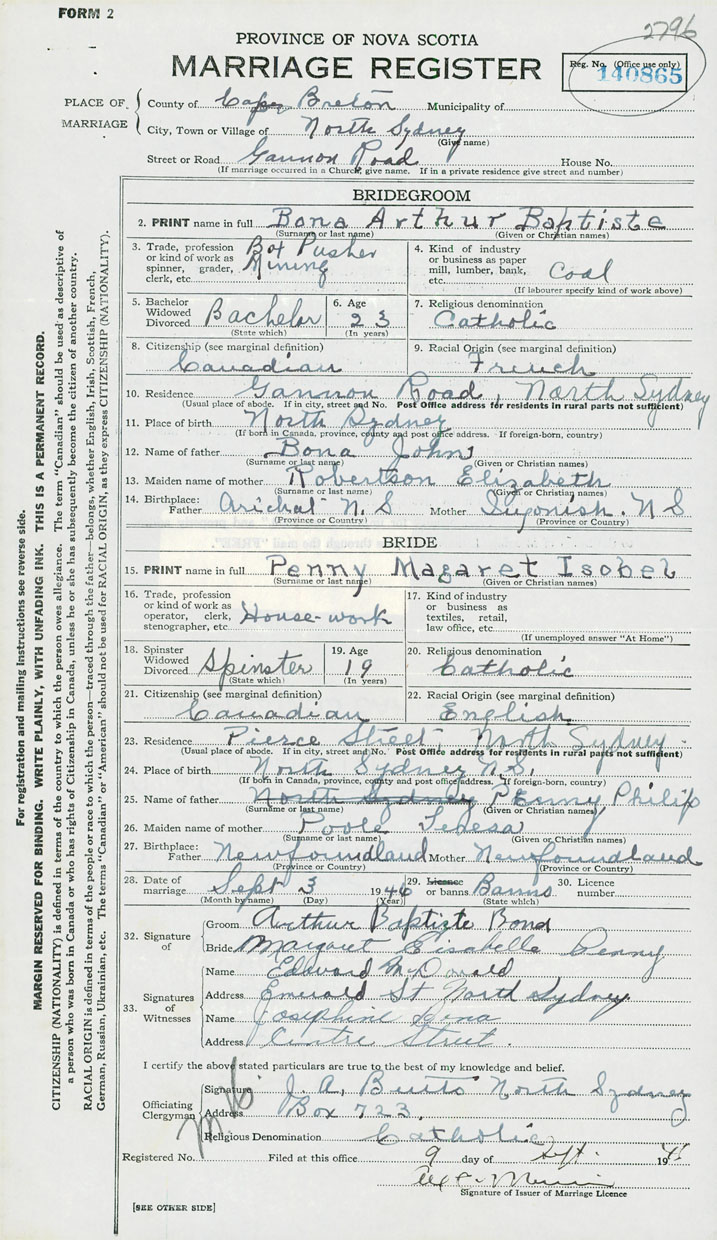 FORM 2
2796
PROVINCE OF NOVA SCOTIA
MARRIAGE REGISTER
Reg. No. (Office use only)
140865
PLACE OF MARRIAGE
County of Cape Breton Municipality of
City, Town or Village of North Sydney
(Give name)
Street or Road Gannon Road House No.
(If marriage occurred in a Church, give name. If in a private residence give street and number)
BRIDEGROOM
2. PRINT name in full Bona Arthur Baptiste
(Surname or last name) (Given or Christian names)
3. Trade, profession or kind of work as spinner, grader, clerk, etc. Box Pusher Mining
4. Kind of industry or business as paper mill, lumber, bank, etc. Coal
(If labourer specify kind of work above)
5. Bachelor Widowed Divorced Bachelor
(State which)
6. Age 23
(In years)
7. Religious denomination
Catholic
8. Citizenship (see marginal definition)
Canadian
9. Racial Origin (see marginal definition)
French
10. Residence Gannon Road, North Sydney
(Usual place of abode. If in city, street and No. Post Office address for residents in rural parts not sufficient)
11. Place of birth North Sydney
(If born in Canada, province, county and post office address. If foreign-born, country)
12. Name of father Bona John
(Surname or last name) (Given or Christian names)
13. Maiden name of mother Robertson Elizabeth
(Surname or last name) (Given or Christian names)
14. Birthplace: Father Arichat N.S Mother Ingonish. N S
(Province or Country) (Province or Country)
BRIDE
15. PRINT name in full Penny Magaret Isobel
(Surname or last name) (Given or Christian names)
16. Trade, profession or kind of work as operator, clerk, stenographer, etc. House-work
17. Kind of industry or business as textiles, retail, law office, etc.
(If unemployed answer "At Home")
18. Spinster Widowed Divorced Spinster
(State which)
19. Age 19
(In years)
20. Religious denomination
Catholic
21. Citizenship (see marginal definition)
Canadian
22. Racial Origin (see marginal definition)
English
23. Residence Pierce Street, North Sydney
(Usual place of abode. If in city, street and No. Post Office address for residents in rural parts not sufficient)
24. Place of birth North Sydney N.S.
(If born in Canada, province, county and post office address. If foreign-born, country)
25. Name of father North Sydney Penny Philip
(Surname or last name) (Given or Christian names)
26. Maiden name of mother Poole Teresa
(Surname or last name) (Given or Christian names)
27. Birthplace: Father Newfoundland Mother Newfoundland
(Province or Country) (Province or Country)
28. Date of marriage Sept 3 1946 29. Licence or banns Banns 30. Licence number
(Month by name) (Day) (Year) (State which)
32. Signature of
Groom Arthur Baptiste Bona
Bride Margaret Eisabelle Penny
33. Signatures of Witnesses
Name Edward McDonald
Address Emerald St North Sydney
Name Josephine Bona
Address Centre Street.
I certify the above stated particulars are true to the best of my knowledge and belief.
Officiating Clergyman
Signature J. A. Butts North Sydney
Address Box 723.
Religious Denomination Catholic
Registered No. Filed at this office 9 day of Sept. 19
Signature of Issuer of Marriage Licence
[SEE OTHER SIDE]
For registration and mailing instructions see reverse side.
MARGIN RESERVED FOR BINDING. WRITE PLAINLY, WITH UNFADING INK. THIS IS A PERMANENT RECORD.
CITIZENSHIP (NATIONALITY) is defined in terms of the country to which the person owes allegiance. The term "Canadian" should be used as descriptive of
a person who was born in Canada or who has rights of Citizenship in Canada, unless he or she has subsequently become the citizen of another country.
RACIAL ORIGIN is defined in terms of the people or race to which the person—traced through the father—belongs, whether English, Irish, Scottish, French,
German, Russian, Ukrainian, etc. The terms "Canadian" or "American" should not be used for RACIAL ORIGIN, as they express CITIZENSHIP (NATIONALITY).